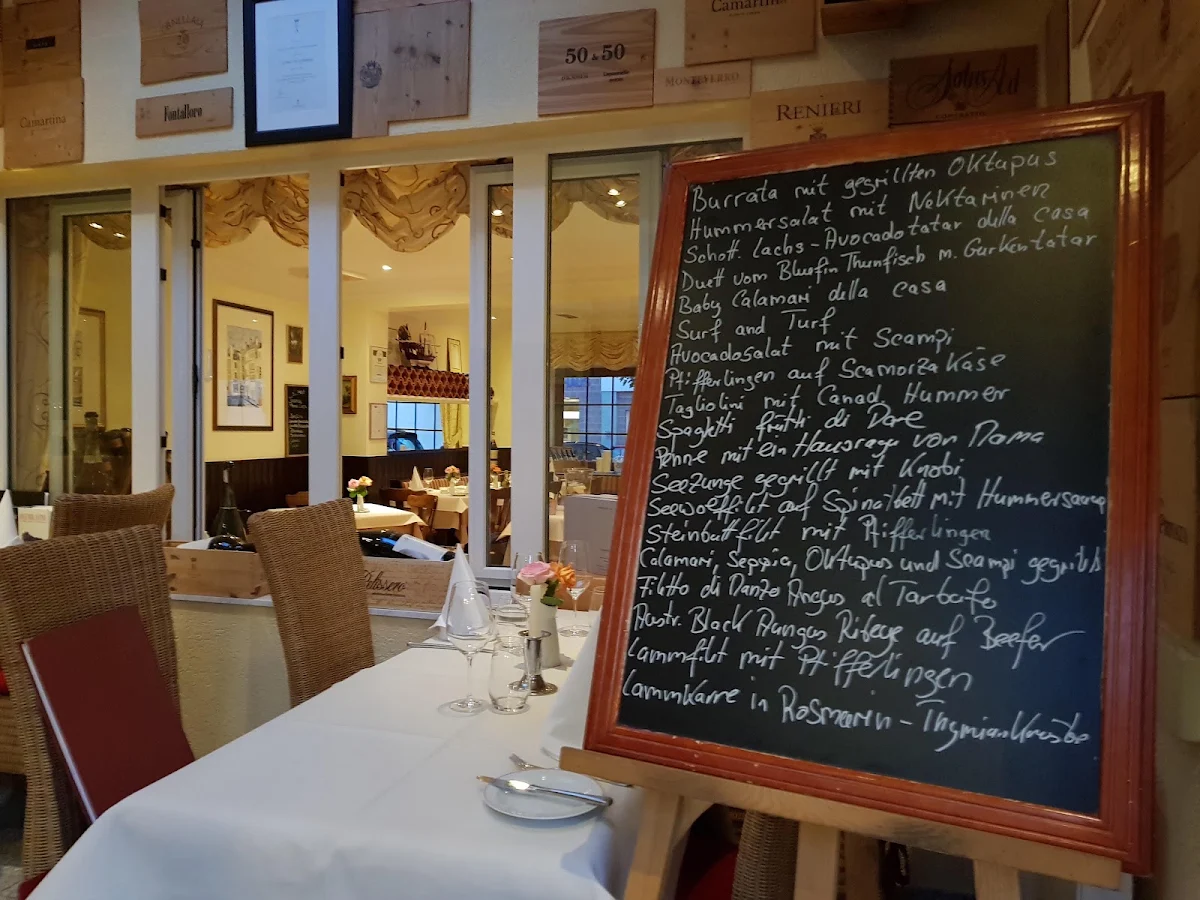 Camartina
50 & 50
MONTEVERRO
Camartina
Fontalloro
RENIERI
Burrata mit gegrillten Oktapus
Hummersalat mit Nektarinen
Schott. Lachs-Avocadotatar della casa
Duett vom Bluefin Thunfisch m. Gurkentatar
Baby Calamari della casa
Surf and Turf
Avocadosalat mit Scampi
Pfifferlingen auf Scamorza Käse
Tagliolini mit Canad. Hummer
Spagetti frutti di Mare
Penne mit ein Hausragu von Mama
Seezunge gegrillt mit Knobi
Seewolffilet auf Spinatbett mit Hummersauce
Steinbuttfilet mit Pfifferlingen
Calamari, Seppia, Oktapus und Scampi gegrillt
Filetto di Manzo Angus al Tartufo
Austr. Black Aungus Ribeye auf Beefer
Lammfilet mit Pfifferlingen
Lammkarre in Rosmarin-Thymiankruste